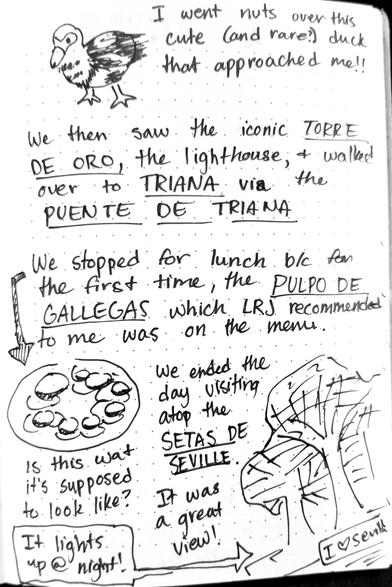 I went nuts over this
cute (and rare?) duck
that approached me!!
We then saw the iconic TORRE
DE ORO, the lighthouse, + walked
over to TRIANA via the
PUENTE DE TRIANA
We stopped for lunch b/c for
the first time, the PULPO DE
GALLEGAS which LRJ recommended
to me was on the menu.
Is this wat
it's supposed
to look like?
We ended the
day visiting
atop the
SETAS DE
SEVILLE.
It was
a great
view!
It lights
up @ night!
I ♡